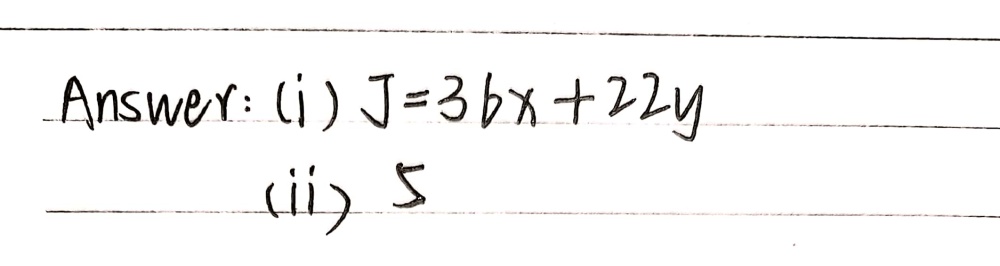 Answer: (i) J=36x+22y
(ii) 5